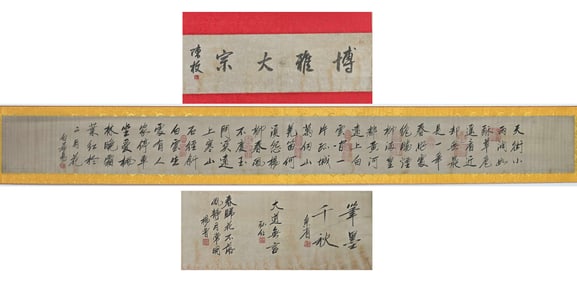 博雅大宗
陳枚
天街小
雨潤如
酥草色
遙看近
却無最
是一年
春好處
絕勝煙
柳滿皇
都黃河
遠上白
雲間一
片孤城
萬仞山
羌笛何
須怨楊
柳春風
不度玉
門關遠
上寒山
石徑斜
白雲生
處有人
家停車
坐愛楓
林晚霜
葉紅於
二月花
筆墨
千秋
大道無言
春歸花不落
風靜月常明
楊晉